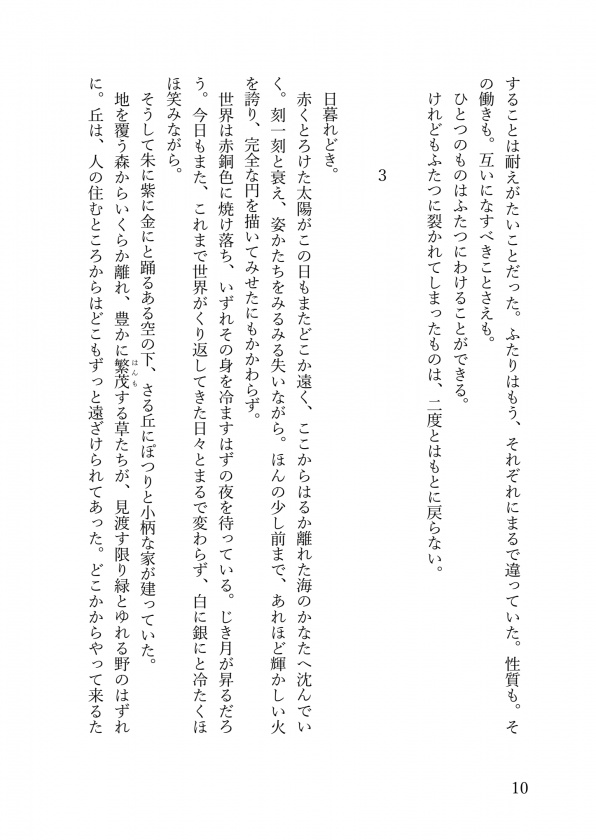 することは耐えがたいことだった。ふたりはもう、それぞれにまるで違っていた。性質も。そ
の働きも。互いになすべきことさえも。
ひとつのものはふたつにわけることができる。
けれどもふたつに裂かれてしまったものは、二度とはもとに戻らない。
3
日暮れどき。
赤くとろけた太陽がこの日もまたどこか遠く、ここからはるか離れた海のかなたへ沈んでい
く。刻一刻と衰え、姿かたちをみるみる失いながら。ほんの少し前まで、あれほど輝かしい火
を誇り、完全な円を描いてみせたにもかかわらず。
世界は赤銅色に焼け落ち、いずれその身を冷ますはずの夜を待っている。じき月が昇るだろ
う。今日もまた、これまで世界がくり返してきた日々とまるで変わらず、白に銀にと冷たくほ
ほ笑みながら。
そうして朱に紫に金にと踊るある空の下、さる丘にぽつりと小柄な家が建っていた。
地を覆う森からいくらか離れ、豊かに繁茂する草たちが、見渡す限り緑とゆれる野のはずれ
はんも
に。丘は、人の住むところからはどこもずっと遠ざけられてあった。どこかからやって来るた
10